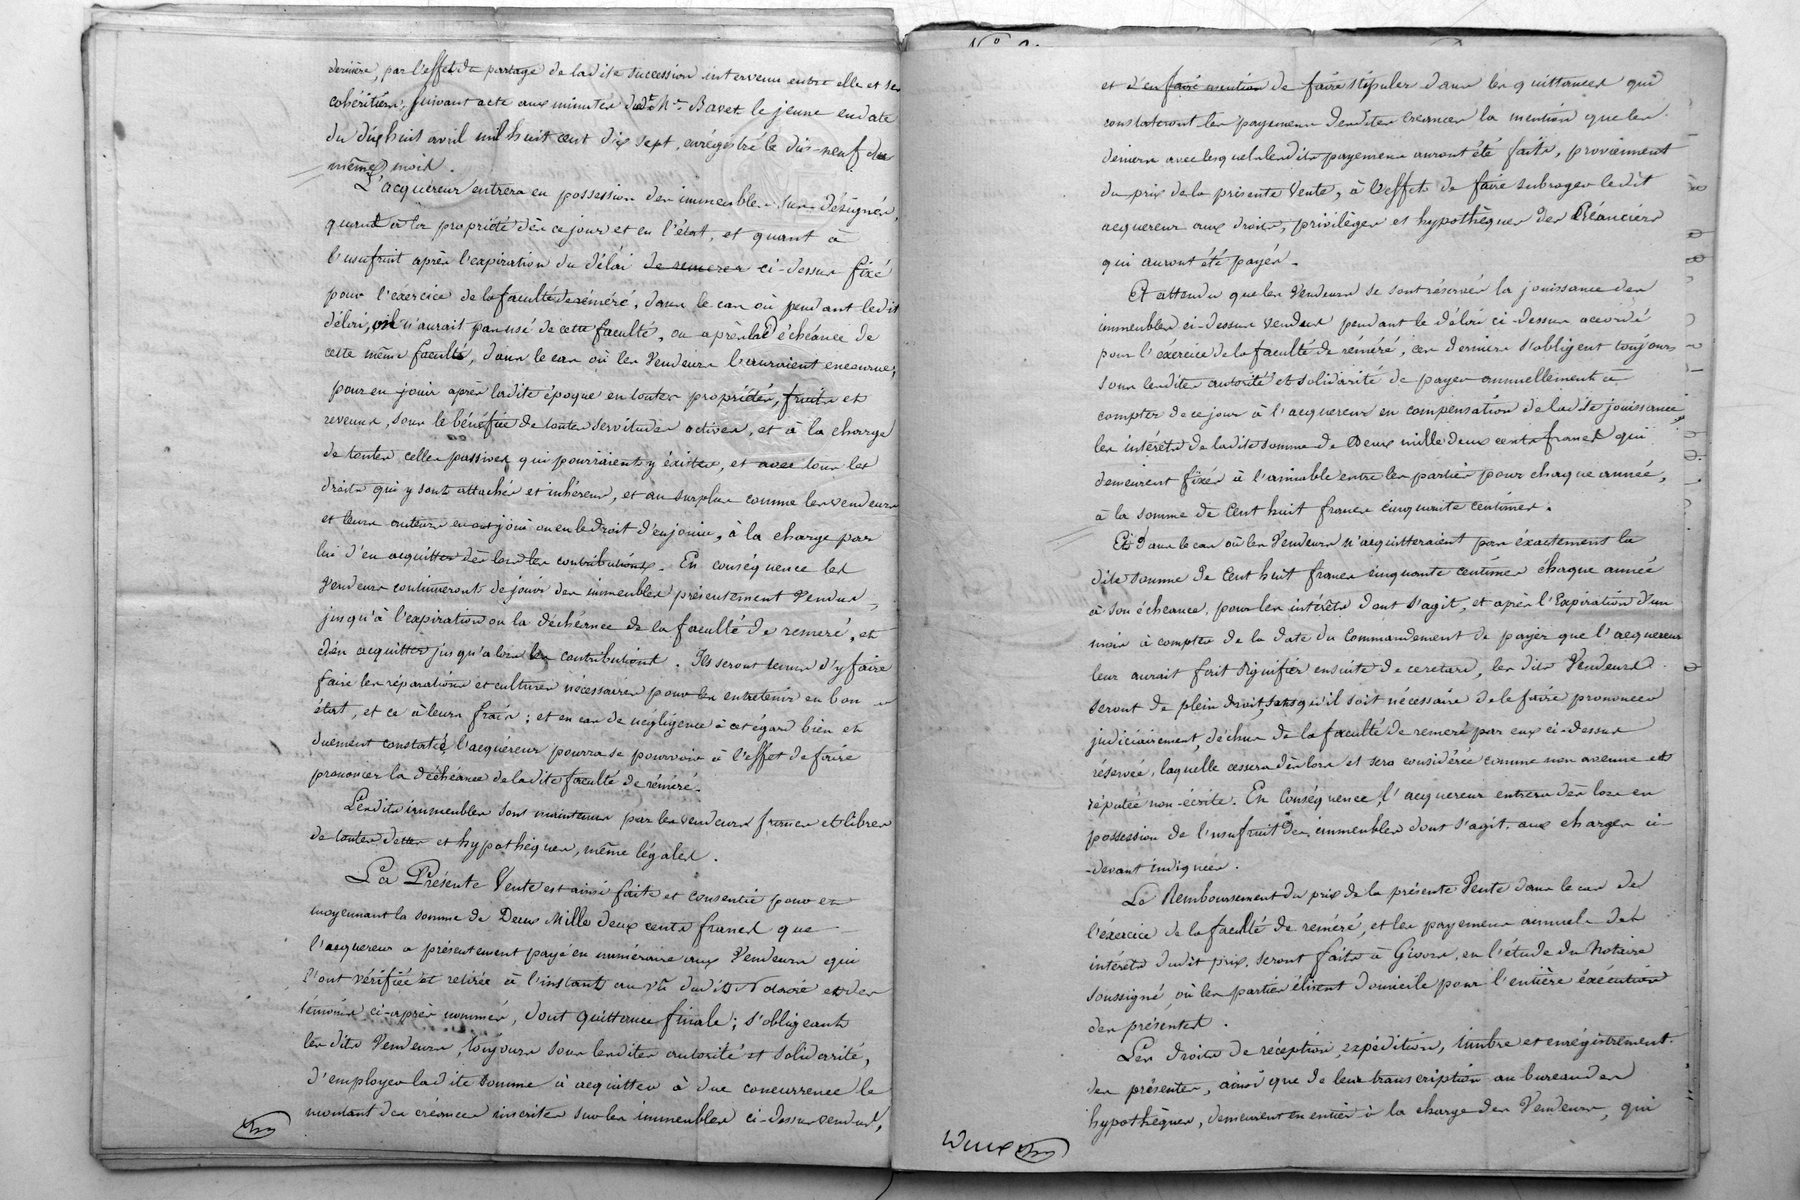 dernière, par l'effet du partage de ladite succession intervenu entre elle et ses
cohéritiers, suivant acte aux minutes dudt Me Bavet le jeune en date
du dix huit avril mil huit cent dix sept, enrégistré le dix-neuf du
même mois.
L'acquéreur entrera en possession des immeubles sus désignés,
quant à la propriété dès ce jour et en l'état, et quant à
l'usufruit après l'expiration du délai de remeree ci-dessus fixé
pour l'exercice de la faculté de réméré, dans le cas où pendant ledit
délai, on n'aurait pas usé de cette faculté, ou après la déchéance de
cette même faculté, dans le cas où les Vendeurs l'auraient encourue;
pour en jouir après ladite époque en toutes propriétés, fruits et
revenus, sous le bénéfice de toutes servitudes actives, et à la charge
de toutes celles passives qui pourraient y éxister, et avec tous les
droits qui y sont attachés et inhérens, et au surplus comme les vendeurs
et leurs auteurs en ont joui ou eu le droit d'en jouir, à la charge par
lui d'en acquitter dès lors les contributions. En conséquence les
Vendeurs continueront de jouir des immeubles présentement Vendus,
jusqu'à l'expiration ou la déchéance de la faculté de reméré, et
d'en acquitter jusqu'alors les contributions. Ils seront tenus d'y faire
faire les réparations et cultures nécessaires pour les entretenir en bon
état, et ce à leurs frais; et en cas de négligence à cet égard bien et
duement constatée, l'acquéreur pourra se pourvoir à l'effet de faire
prononcer la déchéance de ladite faculté de réméré.
Lesdits immeubles sont maintenus par les vendeurs francs et libres
de toutes dettes et hypothèques, même légales.
La Présente Vente est ainsi faite et consentie pour et
moyennant la somme de Deux Mille deux cents francs que
l'acquereur a présentement payé en numéraire aux Vendeurs qui
l'ont vérifiée et retirée à l'instant au vû dudit Notaire et des
témoins ci-après nommés, dont quittance finale; s'obligeant
lesdits Vendeurs, toujours sous lesdites autorité et solidarité,
d'employer ladite somme à acquitter à due concurrence le
montant des créances inscrites sur les immeubles ci-dessus vendus,
et d'en faire mention de faire stipuler dans les quittances qui
constateront les payemens desdites créances la mention que les
deniers avec lesquels lesdits payemens auront été faits, proviennent
du prix de la présente Vente, à l'effet de faire subroger ledit
acquereur aux droits, privilèges et hypothèques des Créanciers
qui auront été payés.
Et attendu que les Vendeurs se sont réservés la jouissance des
immeubles ci-dessus vendus pendant le délai ci-dessus accordé
pour l'éxercice de la faculté de réméré, ces derniers s'obligent toujours
sous lesdites autorité et solidarité de payer annuellement à
compter de ce jour à l'acquereur en compensation de ladite jouissance,
les intérêts de ladite somme de Deux mille deux cents francs qui
demeurent fixés à l'amiable entre les parties pour chaque année,
à la somme de Cent huit francs cinquante centimes.
Et dans le cas où les Vendeurs n'acquitteraient pas éxactement la
dite somme de Cent huit francs cinquante centimes chaque année
à son échéance, pour les intérêts dont s'agit, et après l'Expiration d'un
mois à compter de la date du Commandement de payer que l'acquereur
leur aurait fait signifier ensuite de ce retard, lesdits Vendeurs
seront de plein droit, sans qu'il soit nécessaire de le faire prononcer
judiciairement, déchus de la faculté de remeré par eux ci-dessus
réservée, laquelle cessera dès lors et sera considérée comme non avenue et
réputée non-écrite. En Conséquence, l'acquereur entrera dès lors en
possession de l'usufruit des immeubles dont s'agit aux charges ci-
-devant indiquées.
Le Remboursement du prix de la présente Vente dans le cas de
l'éxercice de la faculté de réméré, et les payemens annuels des
intérêts dudit prix, seront faits à Givors, en l'étude du Notaire
soussigné, où les parties élisent domicile pour l'entière éxécution
des présentes.
Les droits de réception, expédition, timbre et enrégistrement
des présentes, ainsi que de leur transcription au bureau des
hypothèques, demeurent en entier à la charge des Vendeurs, qui